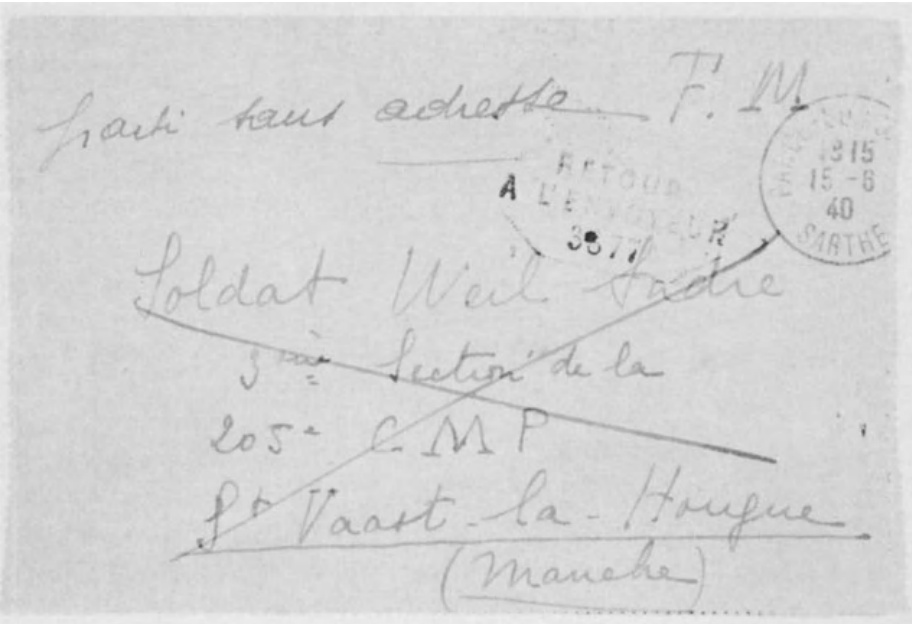 F. M
parti sans adresse
RETOUR
A L'ENVOYEUR
3877
1815
15 -6
40
SARTHE
Soldat Weil Andre
3ème Section de la
205e C M P
St Vaast-la-Hougue
(Manche)